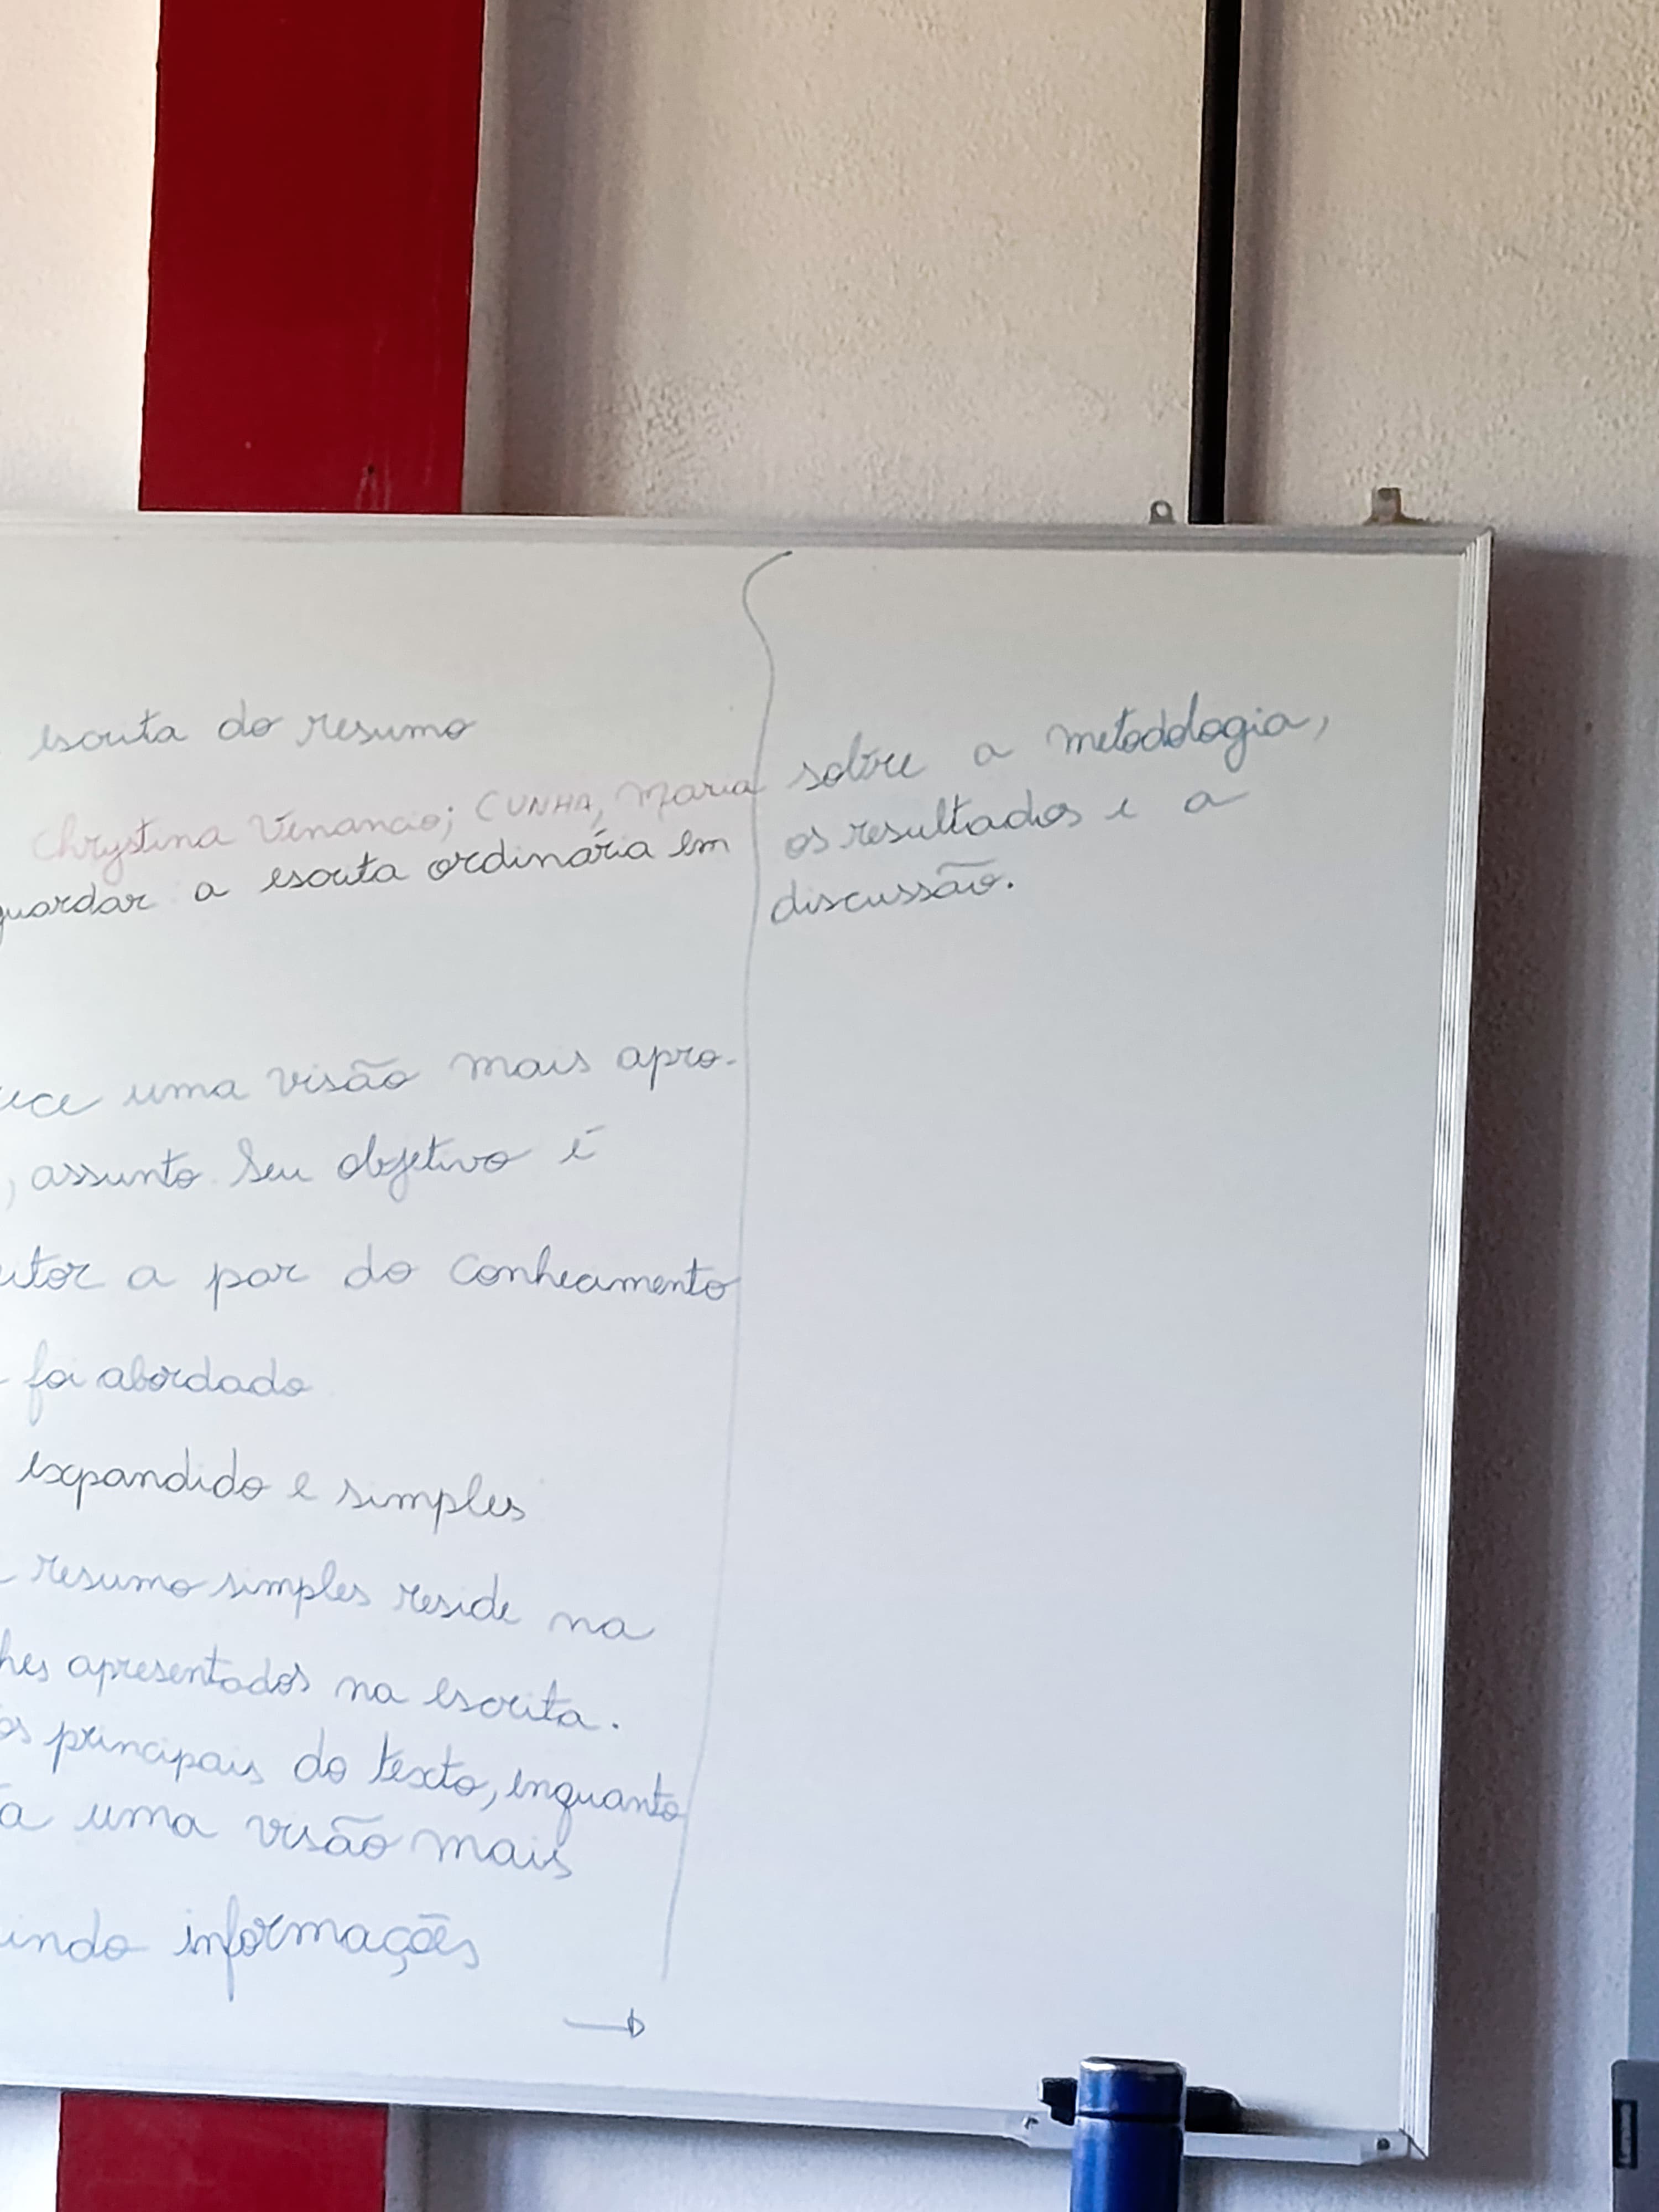 escrita do resumo
Chrystina Venancio; CUNHA, Maria
guardar a escrita ordinária em
ece uma visão mais apro-
, assunto. Seu objetivo é
utor a par do conhecimento
foi abordado
expandido e simples
resumo simples reside na
hes apresentados na escrita.
os principais do texto, enquanto
a uma visão mais
indo informações
sobre a metodologia,
os resultados e a
discussão.
Lenovo